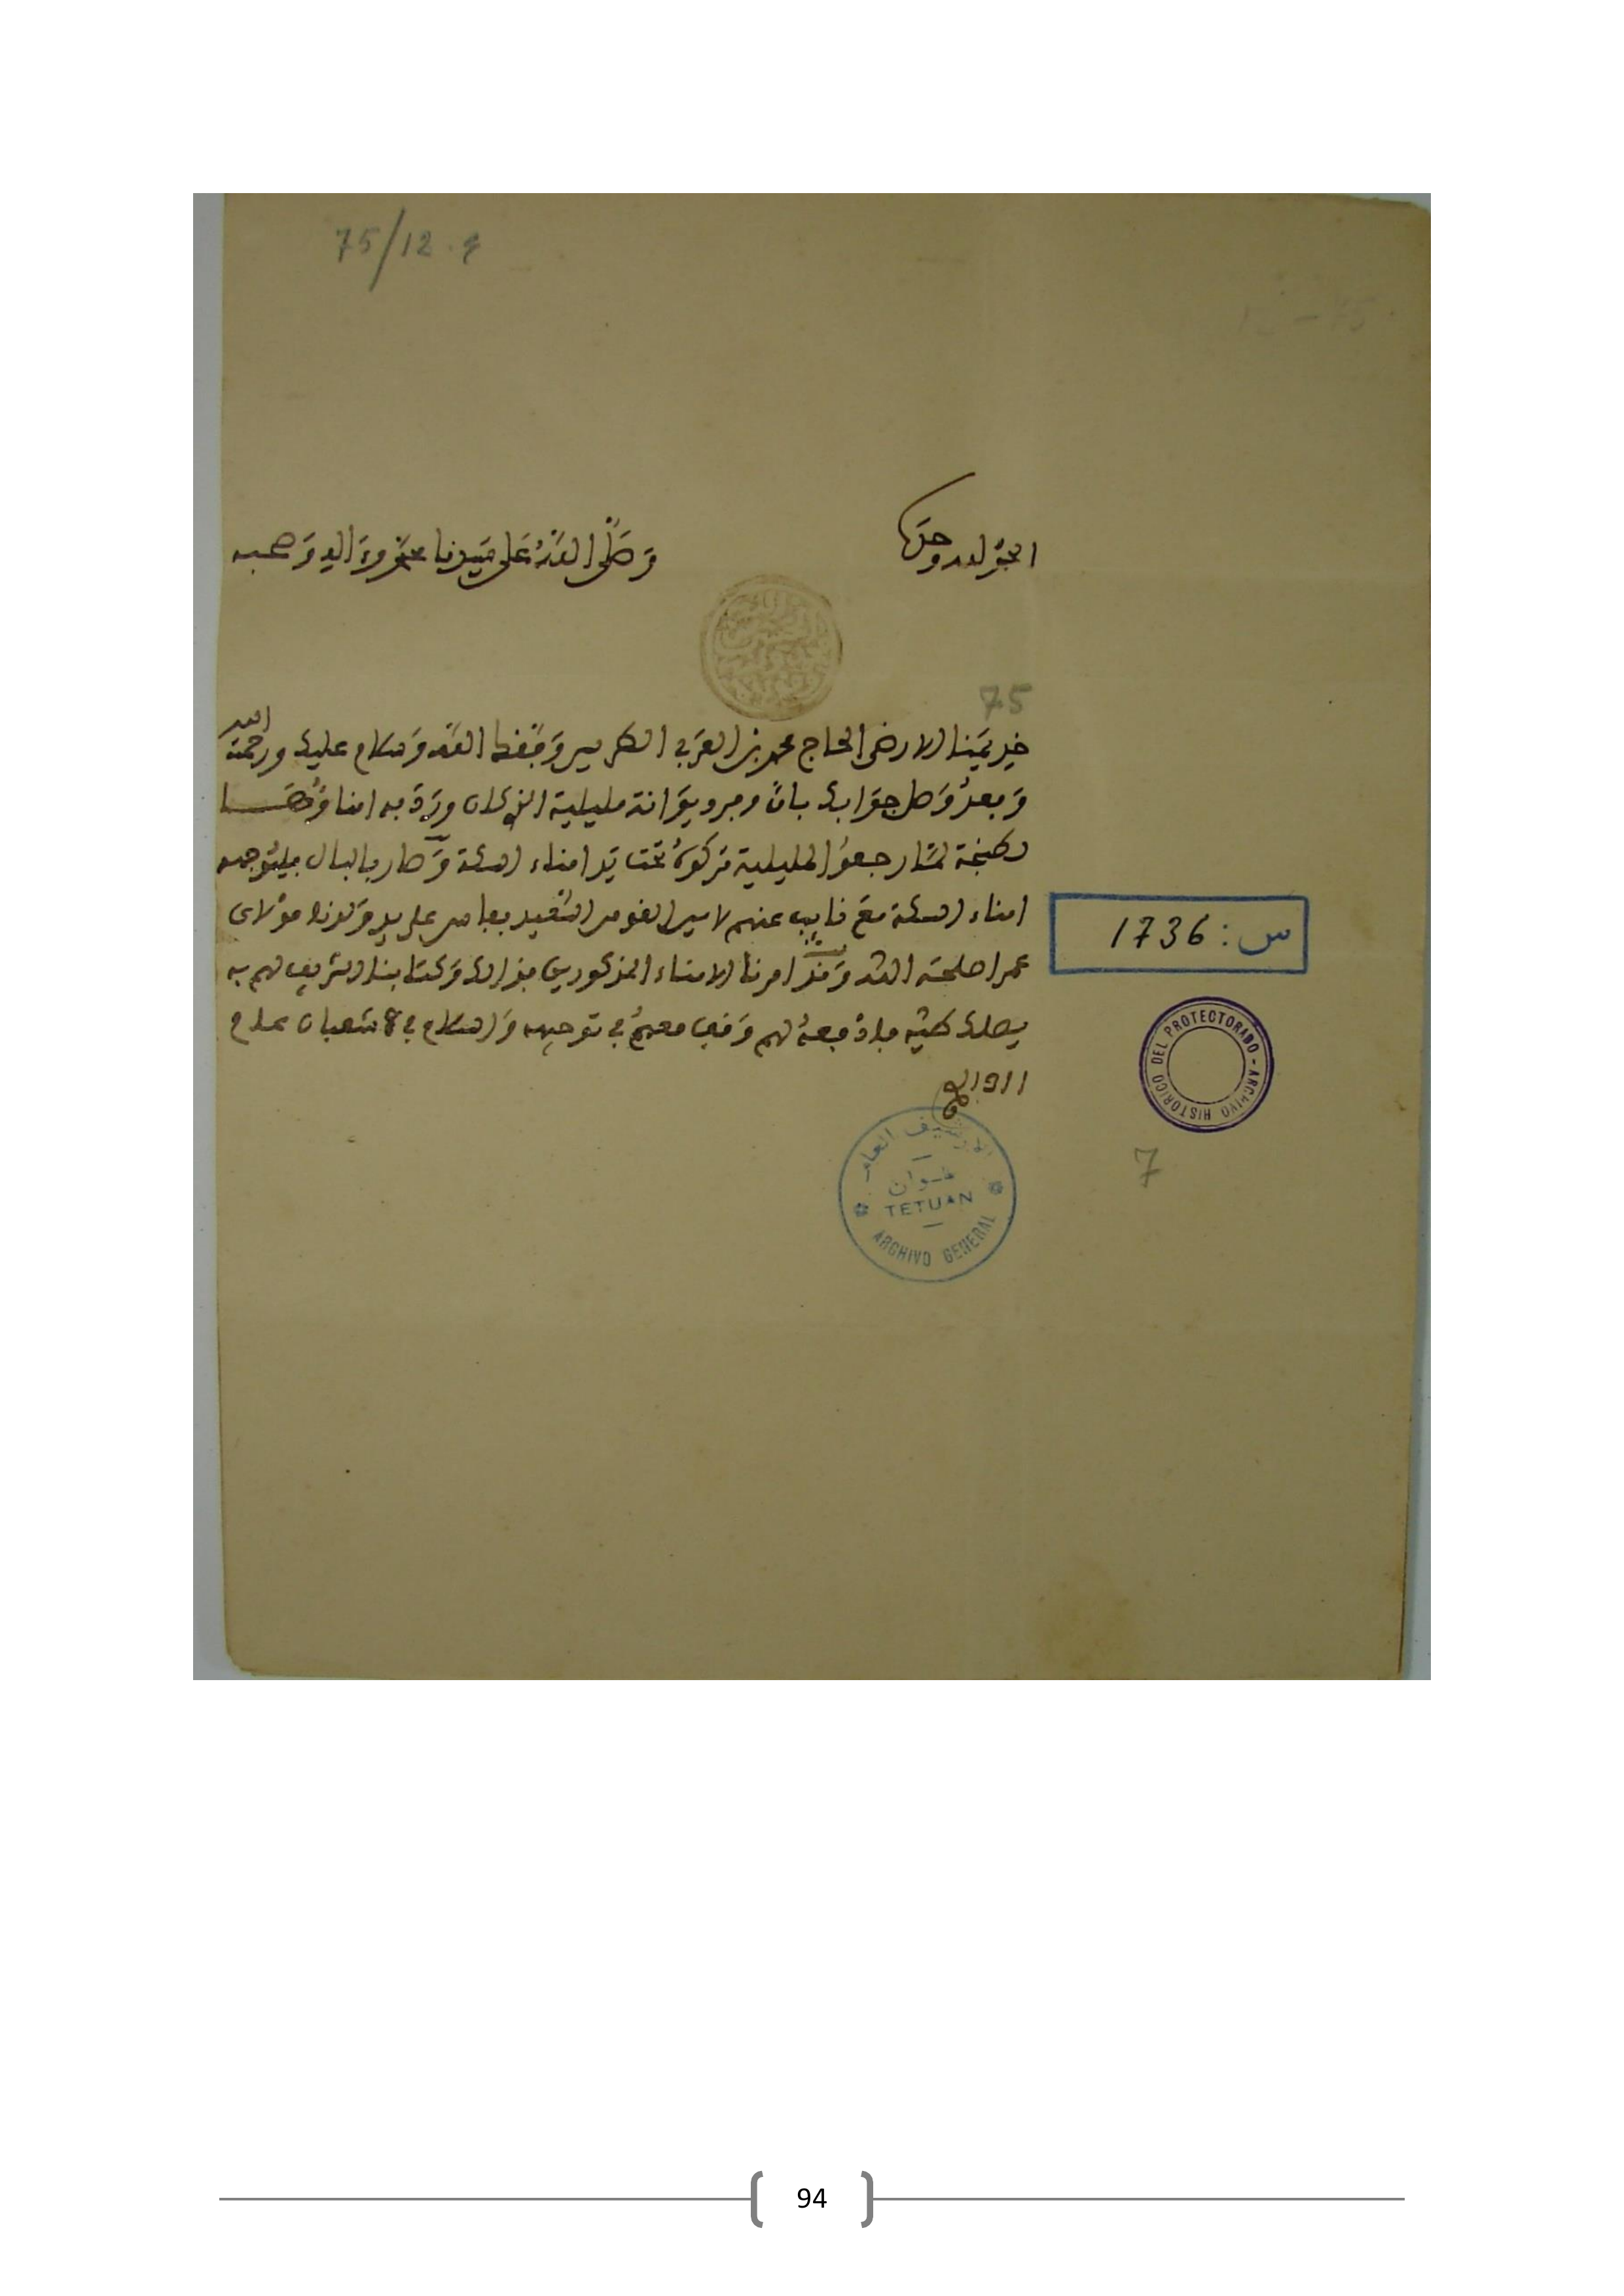 75/12.ع
الحمد لله وحده
وصلى الله على سيدنا محمد وءاله وصحبه
75
خديمنا الارضى الحاج محمد بن العربي الطريس وفقك الله وسلام عليك ورحمة الله
وبعد وصل جوابك بان مركب ديوانة مليلية الذي كان ورد به امناؤها
لطنجة لما رجعوا لمليلية تركوه تحت يد امناء السكة وصار بالبال ليتوجه
امناء السكة مع نايب عنهم لاسيرا لفوم السعيد بفاس على يد ولدنا مولاى
عمر اصلحه الله وقد امرنا الامناء المذكورين بذلك وكتابنا الشريف لهم به
يصلك طيه فادفعه لهم وقف معهم في توجيهه والسلام في 8 شعبان عام
1911
س: 1736
ARCHIVO HISTORICO DEL PROTECTORADO
7
الارشيف العام
تطوان
TETUAN
ARCHIVO GENERAL
94